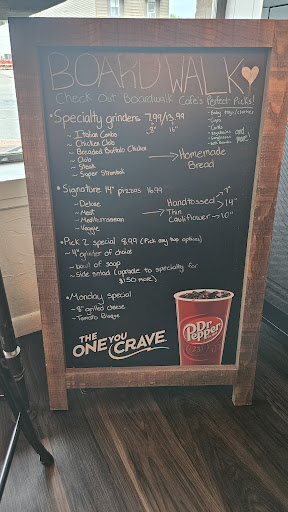 BOARDWALK
Check Out Boardwalk Cafe's Perfect Picks!
- Baby toys/clothes
- Cups
- Cards
and more!
• Specialty grinders 7.99/13.99
8" 16"
- Italian Combo
- Chicken Club
- Breaded Buffalo Chicken
- Club
- Steak
- Super Stromboli
→ Homemade Bread
• Signature 14" pizzas 16.99
- Deluxe
- Meat
- Mediterranean
- Veggie
→ Handtossed → 14"
7"
Thin
Cauliflower → 10"
• Pick 2 special 8.99 (Pick any two options)
- 4" grinder of choice
- bowl of soup
- Side salad (upgrade to specialty for
$1.50 more)
• Monday special
- 8" grilled cheese
- Tomato Bisque
THE
ONE YOU
CRAVE.
Dr Pepper
23